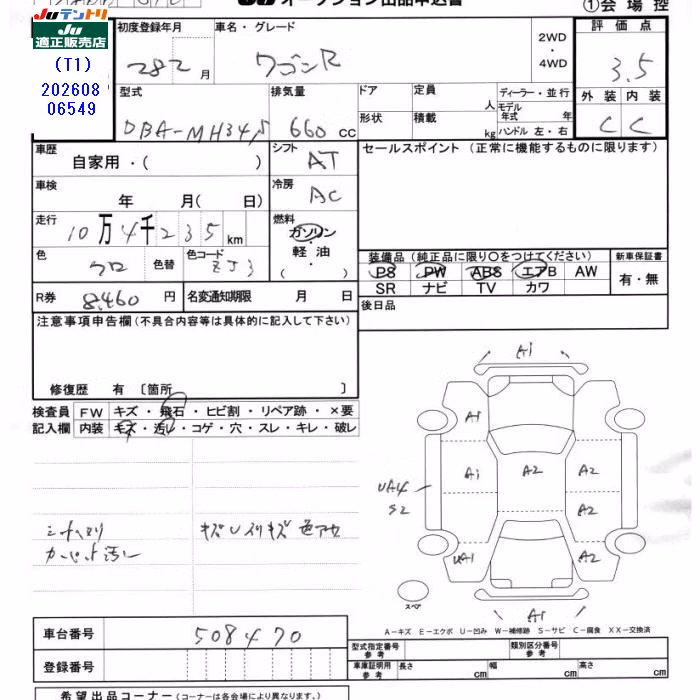 JUテントリ
JU オークション出品申込書
①会場控
JU
適正販売店
(T1)
202608
06549
初度登録年月
車名・グレード
2WD
・
4WD
評価点
28 2 月
ワゴンR
3.5
型式
排気量
ドア
定員
人
ディーラー・並行
モデル年式 年
外装 内装
DBA-MH34S
660 cc
形状
積載
kg
ハンドル 左・右
C C
車歴
自家用・( )
シフト
AT
セールスポイント (正常に機能するものに限ります)
車検
年 月( 日)
冷房
AC
走行
10万4千235 km
燃料
ガソリン
・
軽油
( )
色
クロ
色替
色コード
ZJ3
装備品 (純正品に限り〇をつけてください)
新車保証書
PS PW ABS エアB AW
有・無
SR ナビ TV カワ
R券
8,460 円
名変通知期限 月 日
後日品
注意事項申告欄(不具合内容等は具体的に記入して下さい)
修復歴 有 〔箇所 〕
検査員
記入欄
FW キズ・飛石・ヒビ割・リペア跡・×要
内装 キズ・汚レ・コゲ・穴・スレ・キレ・破レ
A1
A1
A1 A2 A2
UA4
S2
A2
UA1 A2
A1
スペア
カーペット汚レ
A－キズ E－エクボ U－凹み W－補修跡 S－サビ C－腐食 XX－交換済
車台番号
508470
型式指定番号
参考
類別区分番号
参考
登録番号
車庫証明用
参考
長さ cm
幅 cm
高さ cm
希望出品コーナー(コーナーは各会場により異なります。)